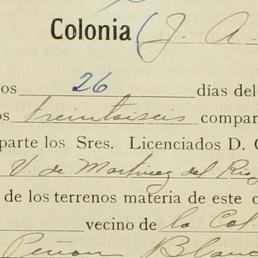 Colonia (J. A.
os 26 días del
os treintaiseis compar
parte los Sres. Licenciados D. C
V. de Martinez del Rio
de los terrenos materia de este c
vecino de la Col
Peñon Blanc